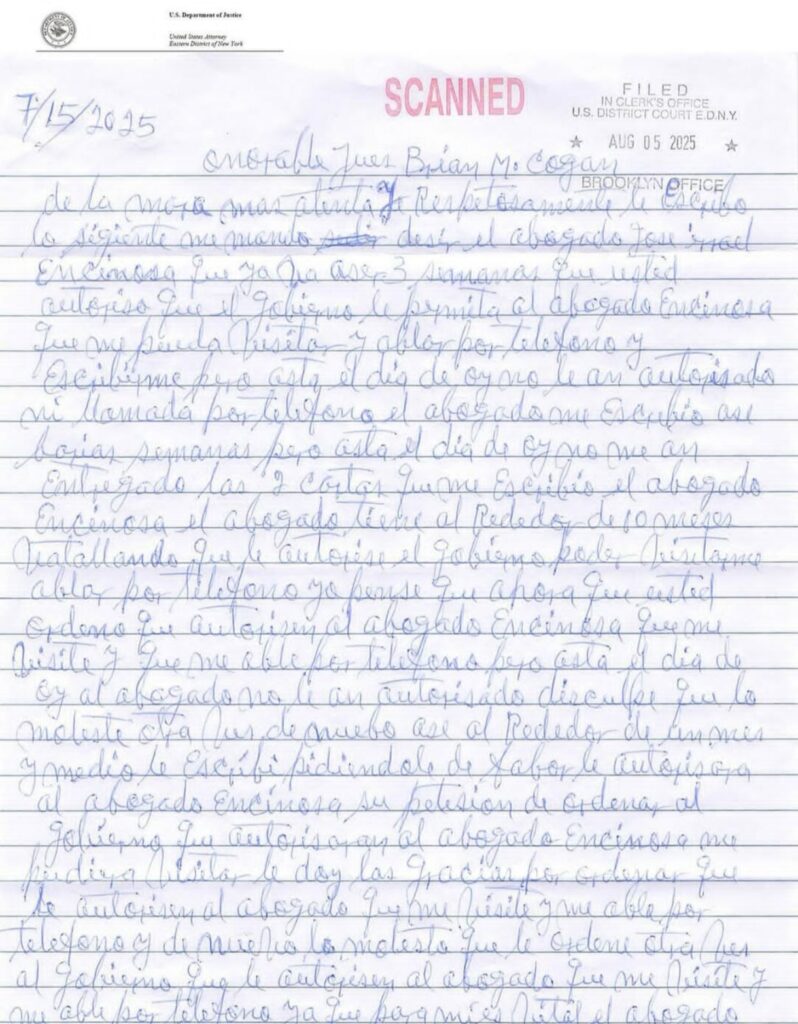 U.S. Department of Justice
United States Attorney
Eastern District of New York
SCANNED
FILED
IN CLERK'S OFFICE
U.S. DISTRICT COURT E.D.N.Y.
★ AUG 05 2025 ★
BROOKLYN OFFICE
7/15/2025
onorable Jues Brian M. Cogan
de la mera mas atenta y Respetosamente le Escribo
lo sigiente me mando desir el abogado Jose
Encinosa que ya ba aser 3 semanas que usted
autoriso que el gobierno le permita al abogado Encinosa
que me pueda Visitar y ablar por telefono y
Escribirme pero asta el dia de oy no le an autorisado
ni llamada por telefono el abogado me Escribio ase
barias semanas pero asta el dia de oy no me an
Entregado las 2 cartas que me Escribio el abogado
Encinosa el abogado tiene al Rededor de 10 meses
Vatallando que le autorise el gobierno poder Visitarme
ablar por telefono yo pense que ahora que usted
ordeno que autorisen al abogado Encinosa que me
Visite y que me able por telefono pero asta el dia de
oy al abogado no le an autorisado disculpe que lo
moleste otra Ves de nuebo ase al Rededor de un mes
y medio le Escribi pidiendole de fabor le autorisara
al abogado Encinosa su petision de ordenar al
gobierno que autorisaran al abogado Encinosa me
pudiera Visitar le doy las Gracias por ordenar que
le autorisen al abogado que me Visite y me able por
telefono y de nuebo lo molesto que le ordene otra Ves
al Gobierno que le autorisen al abogado que me Visite y
me able por telefono ya que para mi es Vital el abogado